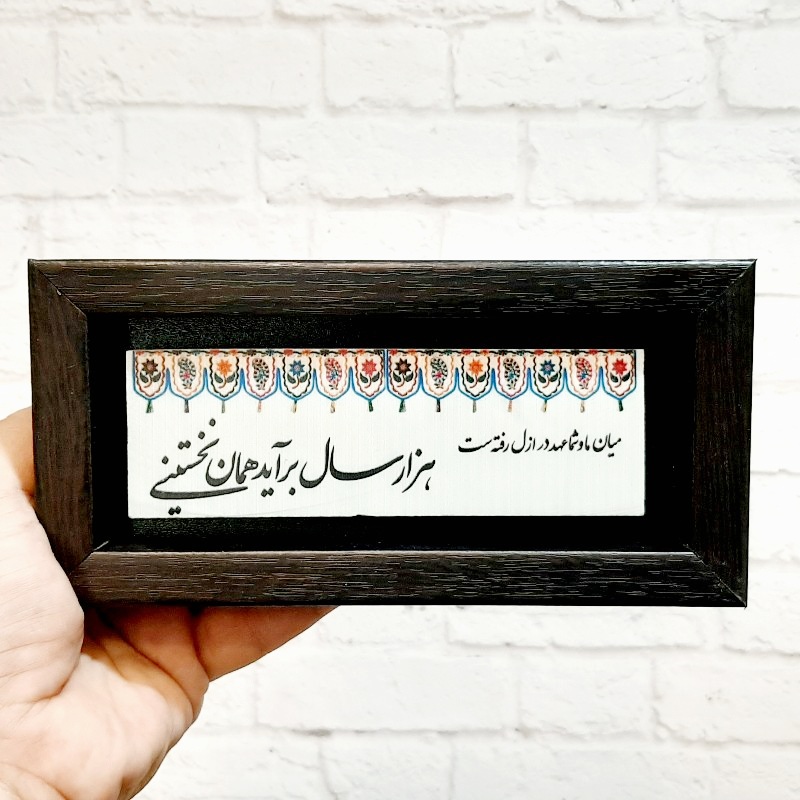 میان ما و شما عهد در ازل رفته‌ست
هزار سال برآید همان نخستینی